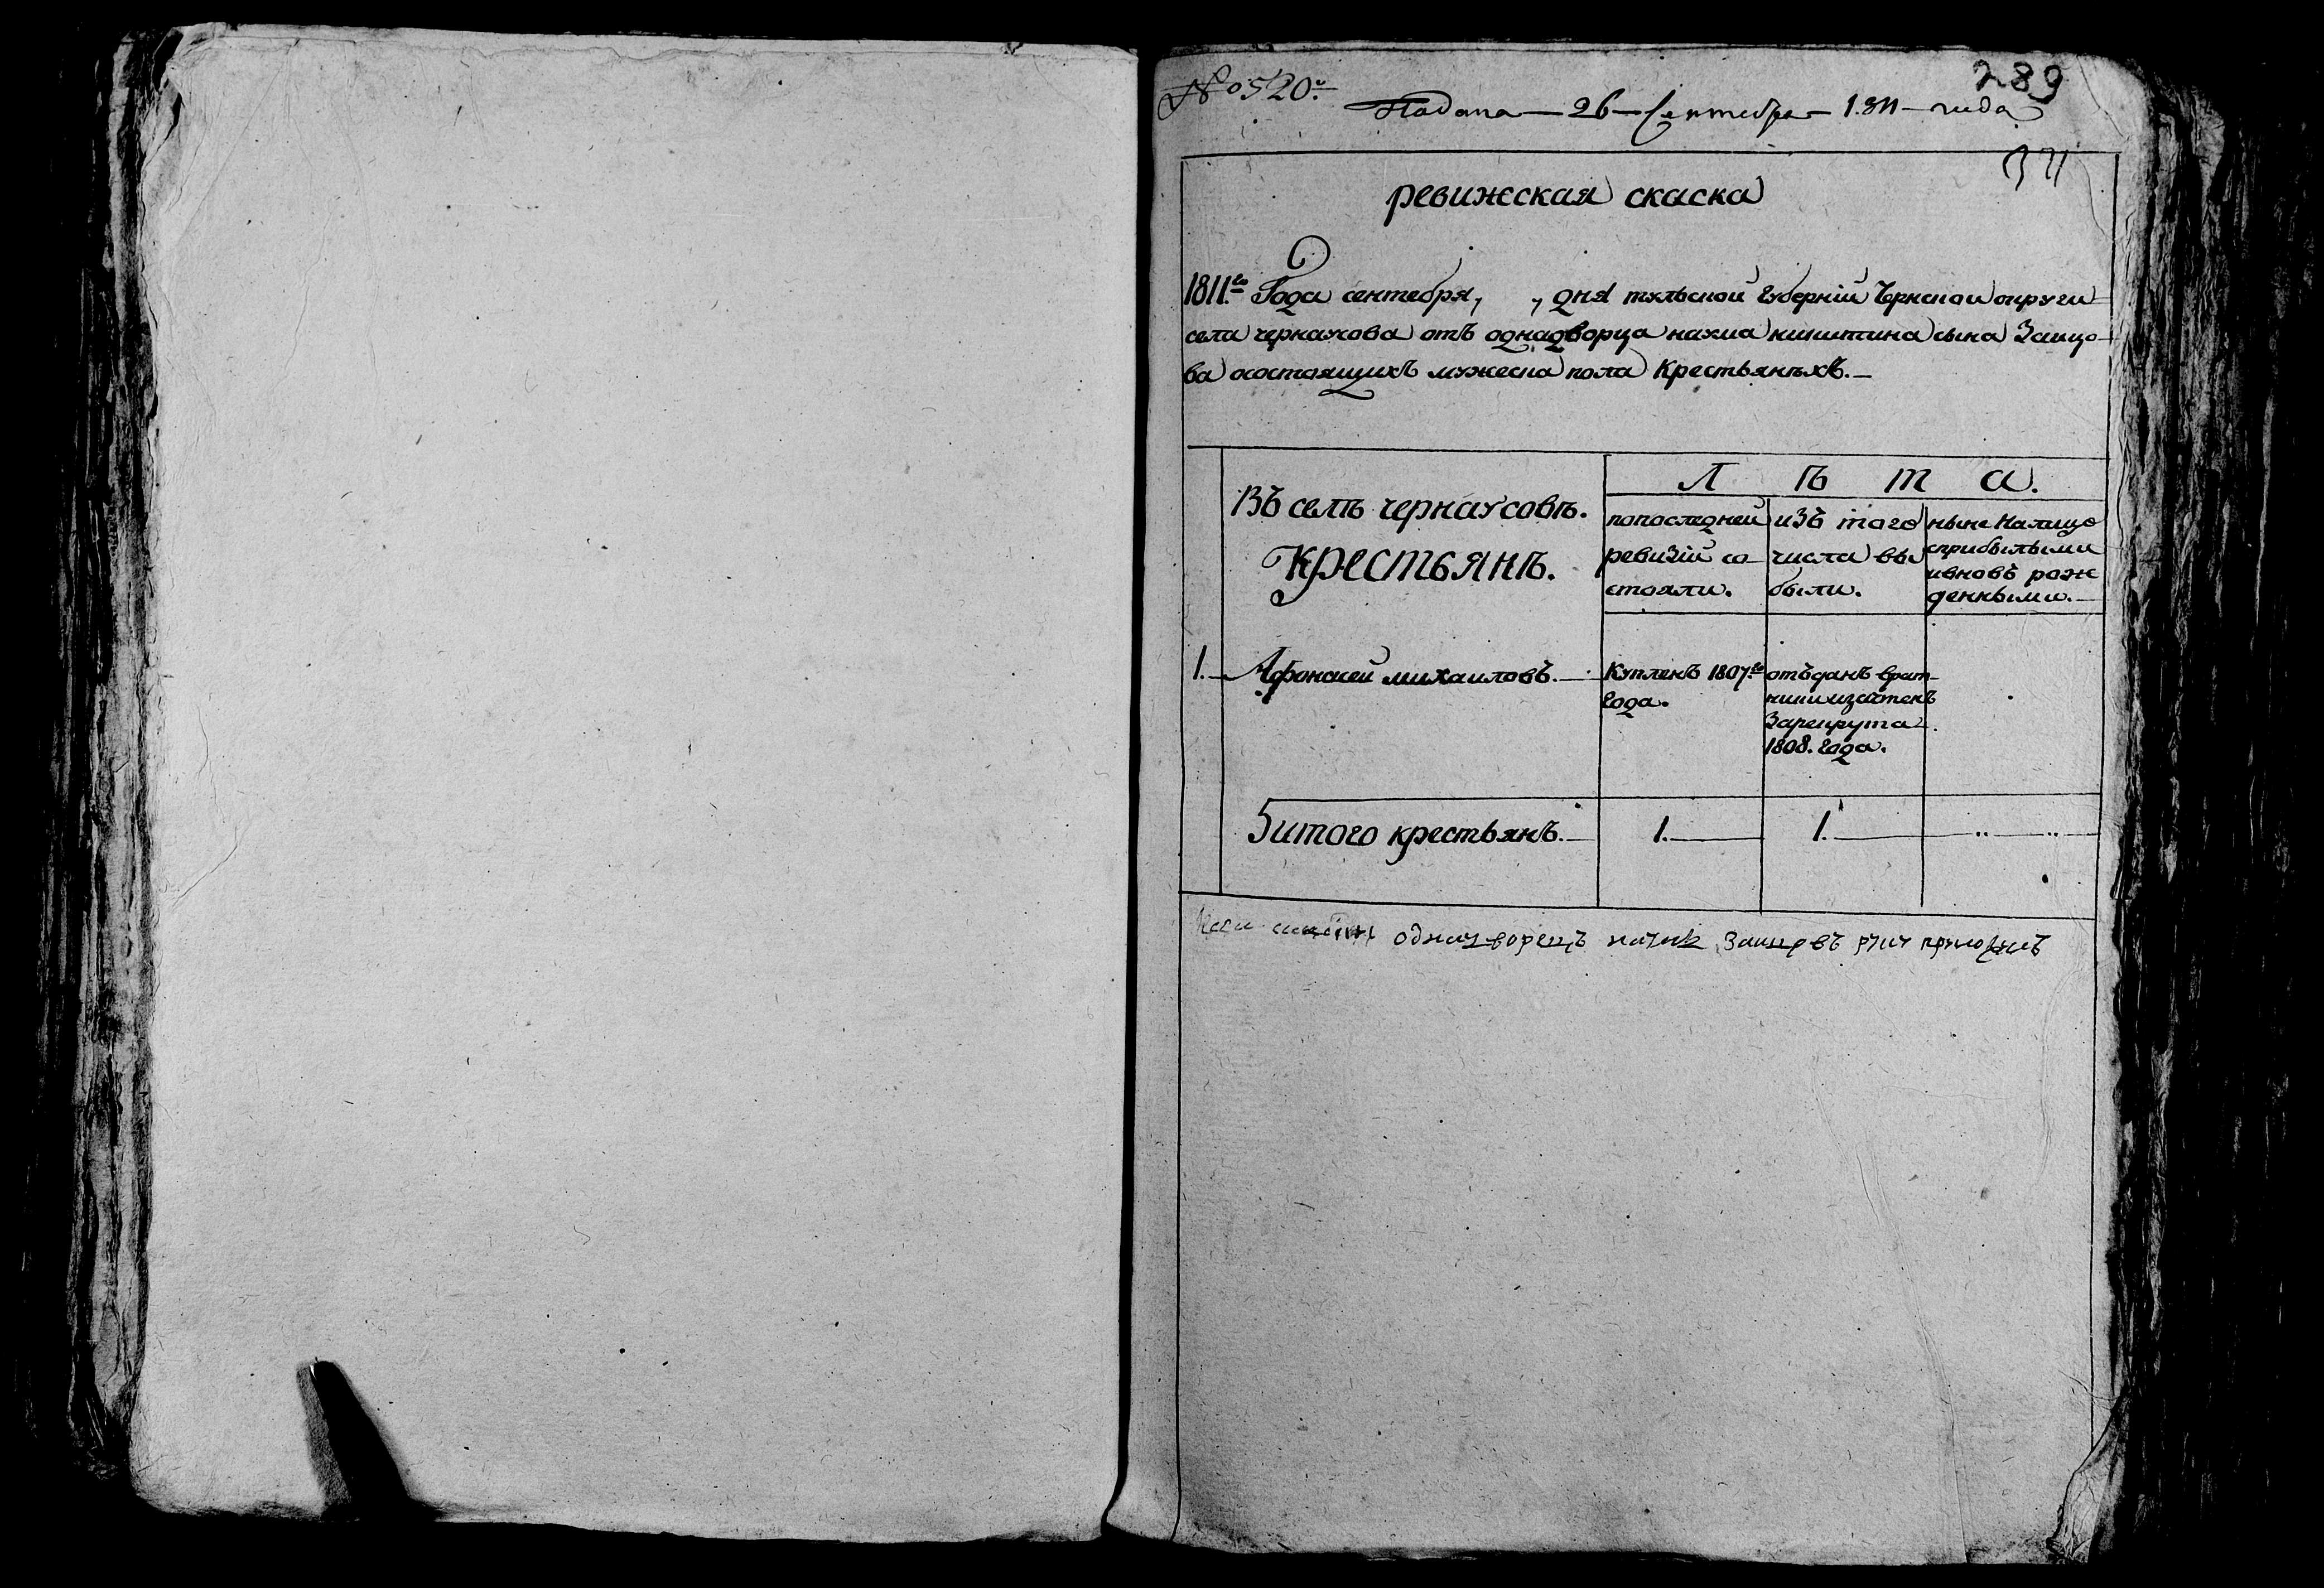 № 520.й
289
Подана — 26 — сентебра — 1811 — года
ревижская скаска
1811.го Года сентебря, , дня тульской губерніи Чернской округи
села чернаусова отъ однадворца наума никитина сына Заицо-
ва осостоящихъ мужеска пола крестьянѣхъ.
Въ селѣ чернаусовѣ.
Крестьянѣ.
Л ѣ т а.
попоследней
ревизіи со
стояли.
изъ того
числа вы
были.
ныне налицо
сприбылыми
ивновь рож
денными.
1. Афонасей михаиловъ.
Купленъ 1807.го
года.
отъданъ врат
ники изачтенъ
Зарекрута
1808. года.
итого крестьянъ. 1. 1. „ „
однадворецъ наумъ Заицовъ руку приложилъ